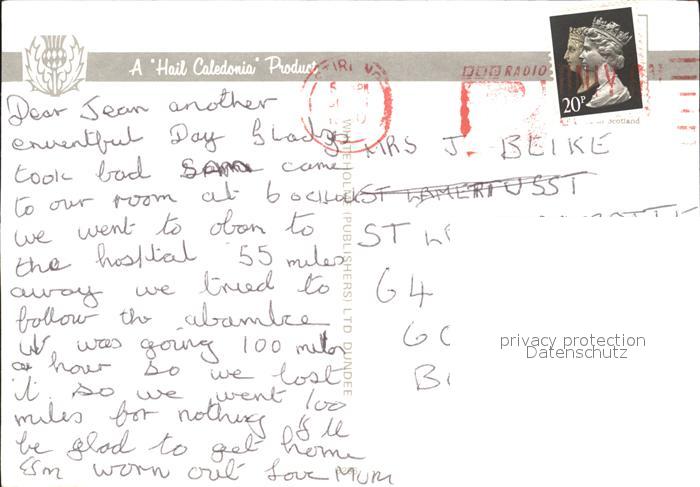 A "Hail Caledonia" Product
RADIO
20P
Scotland
Dear Jean another
enventful Day Gladys
took bad came
to our room at 6 oclock
we went to oban to
the hospital 55 miles
away we tried to
follow the abamlce
it was going 100 miles
a hour so we lost
it so we went 100
miles for nothing I'll
be glad to get home
I'm worn out Love MUM
WHITEHOLME (PUBLISHERS) LTD DUNDEE
MRS J. BEIKE
ST LAMERTUSST
ST L
64
privacy protection
Datenschutz